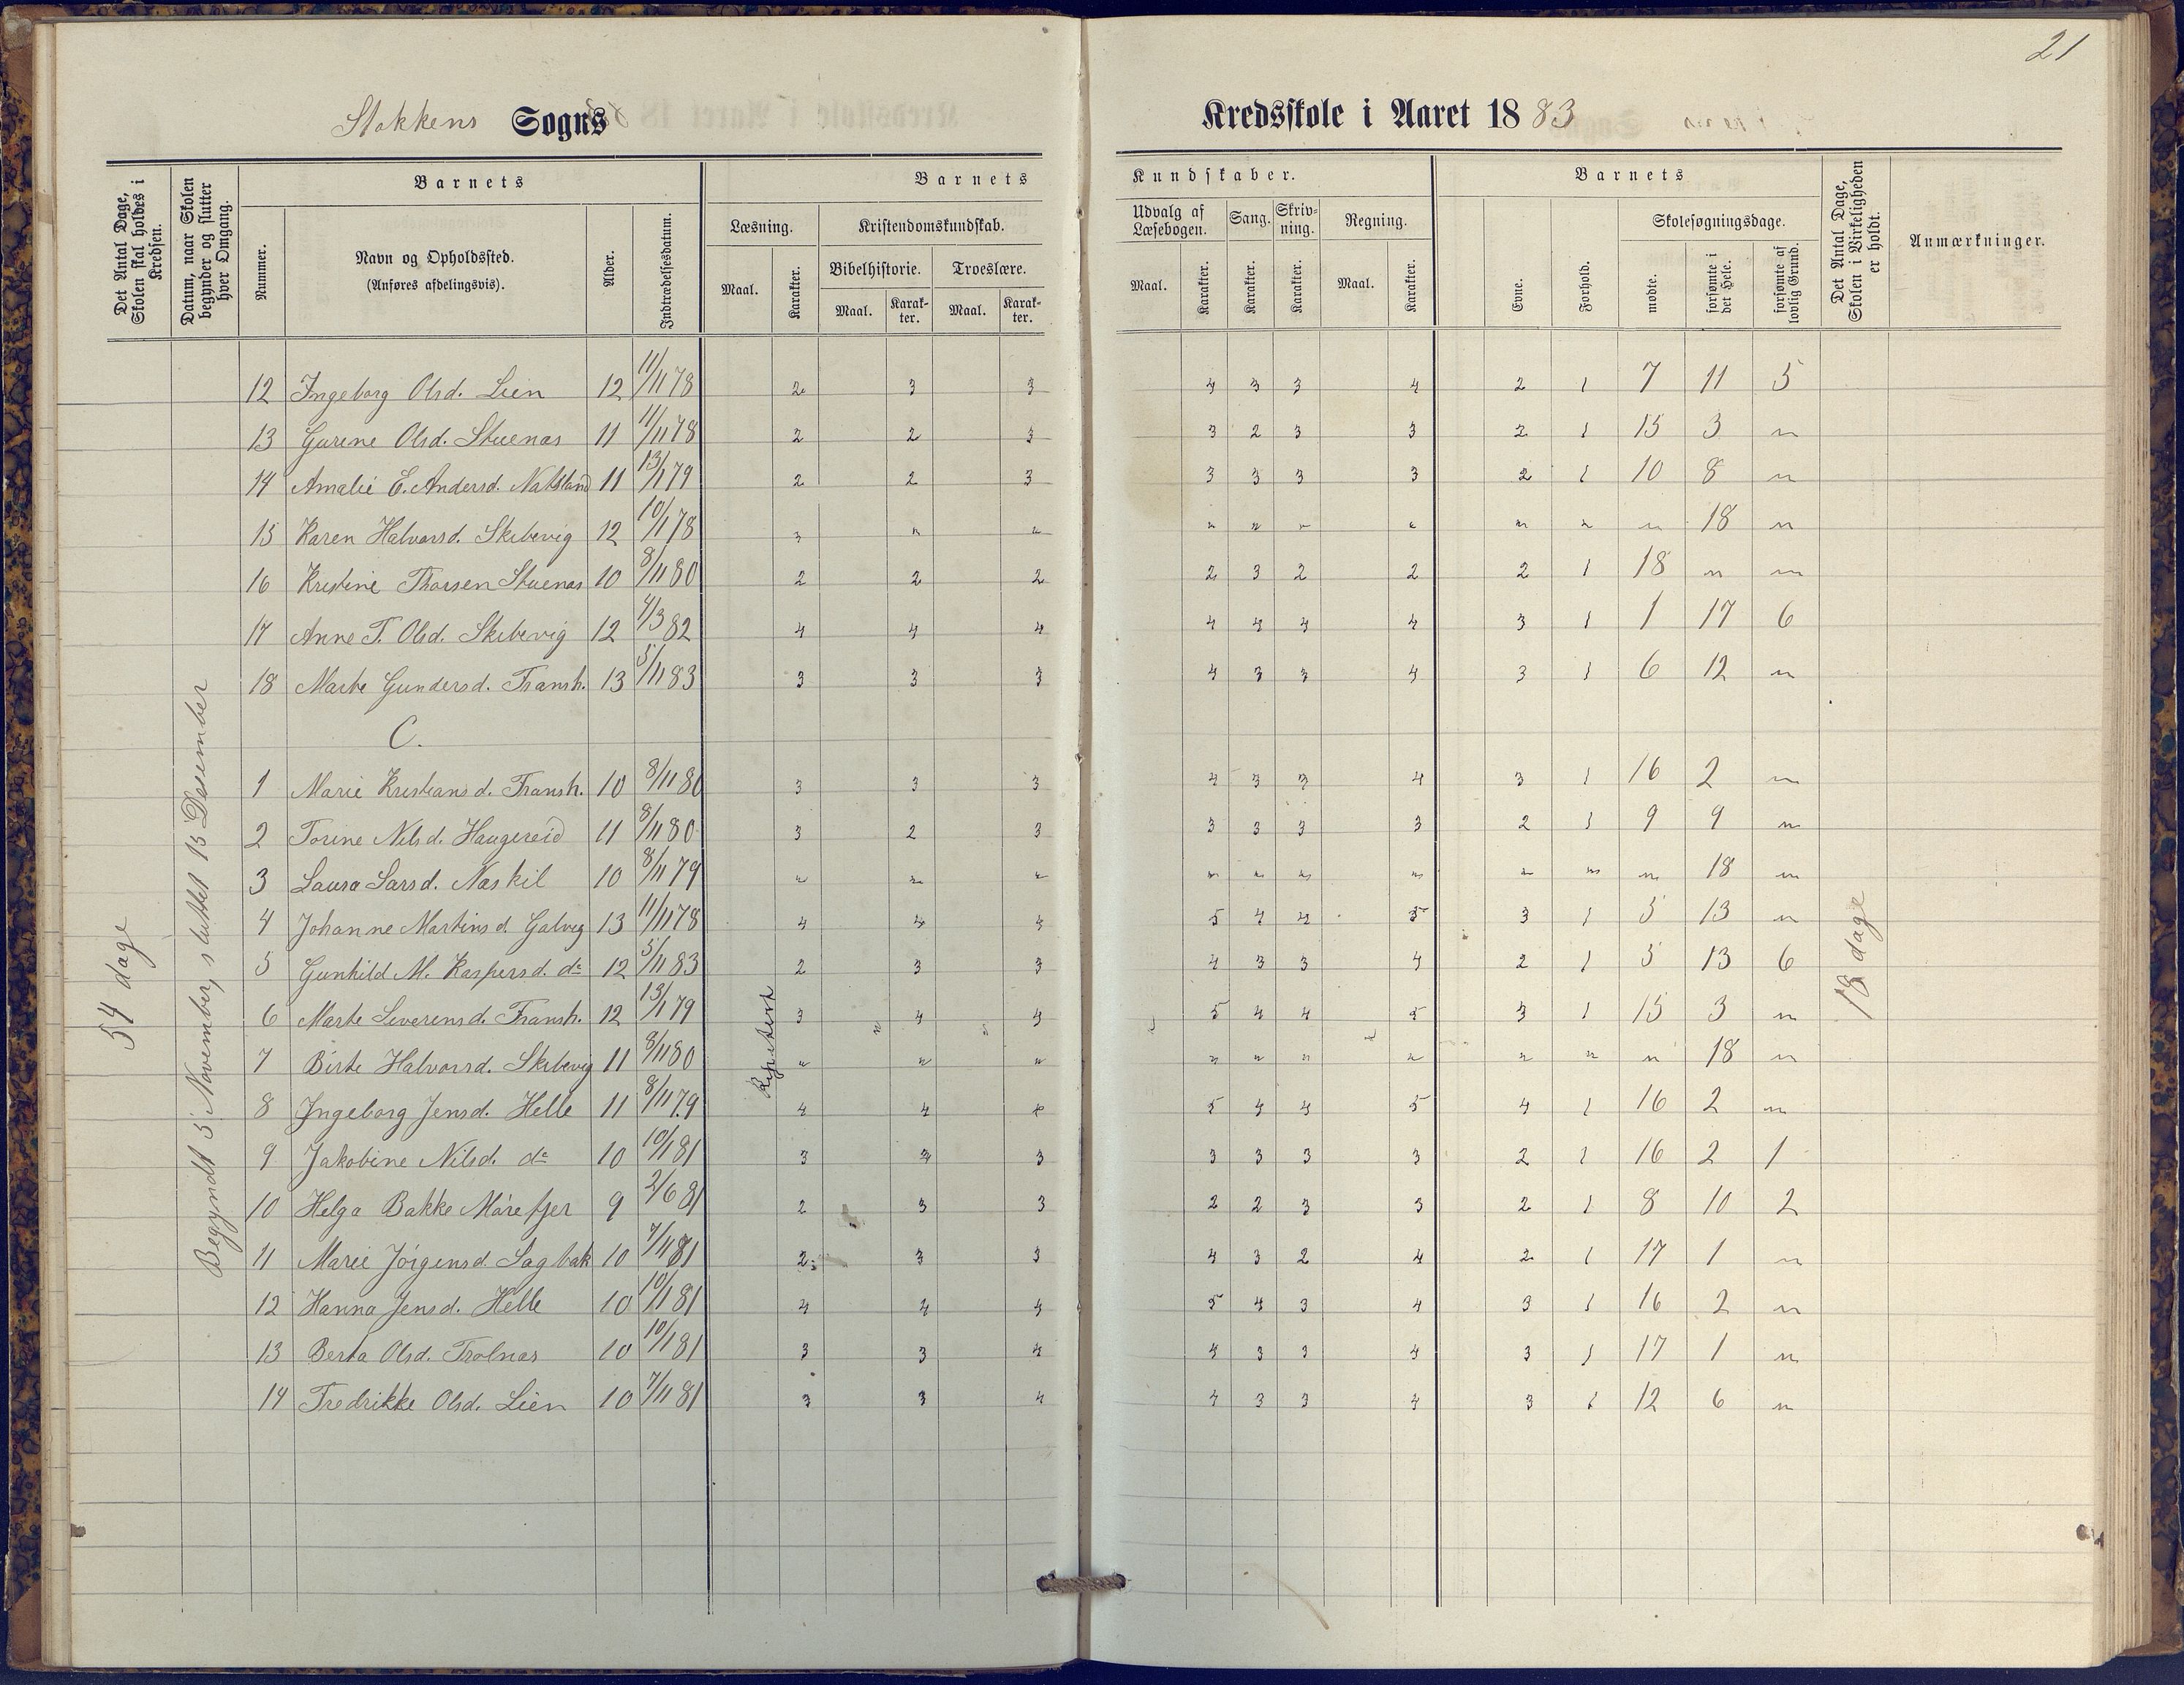 21
Stokkens Sogns
Kredsskole i Aaret 1883
Det Antal Dage, Skolen skal holdes i Kredsen.
Datum, naar Skolen begynder og slutter hver Omgang.
Barnets
Nummer.
Navn og Opholdssted.
(Anføres afdelingsvis).
Alder.
Indtrædelsesdatum.
Barnets
Læsning.
Maal.
Karakter.
Kristendomskundskab.
Bibelhistorie.
Maal.
Karakter.
Troeslære.
Maal.
Karakter.
Kundskaber.
Udvalg af Læsebogen.
Maal.
Karakter.
Sang.
Karakter.
Skrivning.
Karakter.
Regning.
Maal.
Karakter.
Barnets
Evne.
Forhold.
Skolesøgningsdage.
mødte.
forsømte i det Hele.
forsømte af lovlig Grund.
Det Antal Dage, Skolen i Virkeligheden er holdt.
Anmærkninger.
54 dage
Begyndt 5 November, sluttet 15 Desember
12 Ingeborg Olsd. Lien 12 11/11 78 2 3 3 4 3 3 4 2 1 7 11 5
13 Gurine Olsd. Stuenæs 11 11/11 78 2 2 3 3 2 3 3 2 1 15 3 "
14 Amalie E. Andersd. Natsland 11 13/1 79 2 2 3 3 3 3 3 2 1 10 8 "
15 Karen Halvorsd. Skibevig 12 10/1 78 3 " " " " " " " " " 18 "
16 Kristine Thorsen Stuenæs 10 8/11 80 2 2 2 2 3 2 2 2 1 18 " "
17 Anne T. Olsd. Skibevig 12 4/3 82 4 4 4 4 4 4 4 3 1 1 17 6
18 Marte Gundersd. Fransh. 13 5/11 83 3 3 3 4 3 3 4 3 1 6 12 "
C.
1 Marie Kristiansd. Fransh. 10 8/11 80 3 3 3 4 3 3 4 3 1 16 2 "
2 Torine Nilsd. Haugereid 11 8/11 80 3 2 3 3 3 3 3 2 1 9 9 "
3 Laura Larsd. Næskil 10 8/11 79 " " " " " " " " " " 18 "
4 Johanne Martinsd. Galvig 13 11/11 78 4 4 4 5 4 4 5 3 1 5 13 "
5 Gunhild M. Kaspersd. do 12 5/11 83 2 3 3 4 3 3 4 2 1 5 13 6
6 Marte Severensd. Fransh. 12 13/1 79 3 4 4 5 4 4 5 3 1 15 3 "
7 Birte Halvorsd. Skibevig 11 8/11 80 " " " " " " " " " " 18 "
8 Ingeborg Jensd. Helle 11 8/11 79 4 4 4 5 4 4 5 4 1 16 2 "
9 Jakobine Nilsd. do 10 10/1 81 3 3 3 3 3 3 3 2 1 16 2 1
10 Helga Bakke Mörefjer 9 2/6 81 2 3 3 2 2 3 3 2 1 8 10 2
11 Marie Jörgensd. Sagbak 10 7/11 81 2 3 3 4 3 2 4 2 1 17 1 "
12 Hanna Jensd. Helle 10 10/1 81 4 4 4 5 4 3 4 3 1 16 2 "
13 Berta Olsd. Trolnæs 10 10/1 81 3 3 4 4 3 3 4 3 1 17 1 "
14 Fredrikke Olsd. Lien 10 7/11 81 3 3 4 4 3 3 4 3 1 12 6 "
Repetert
18 dage